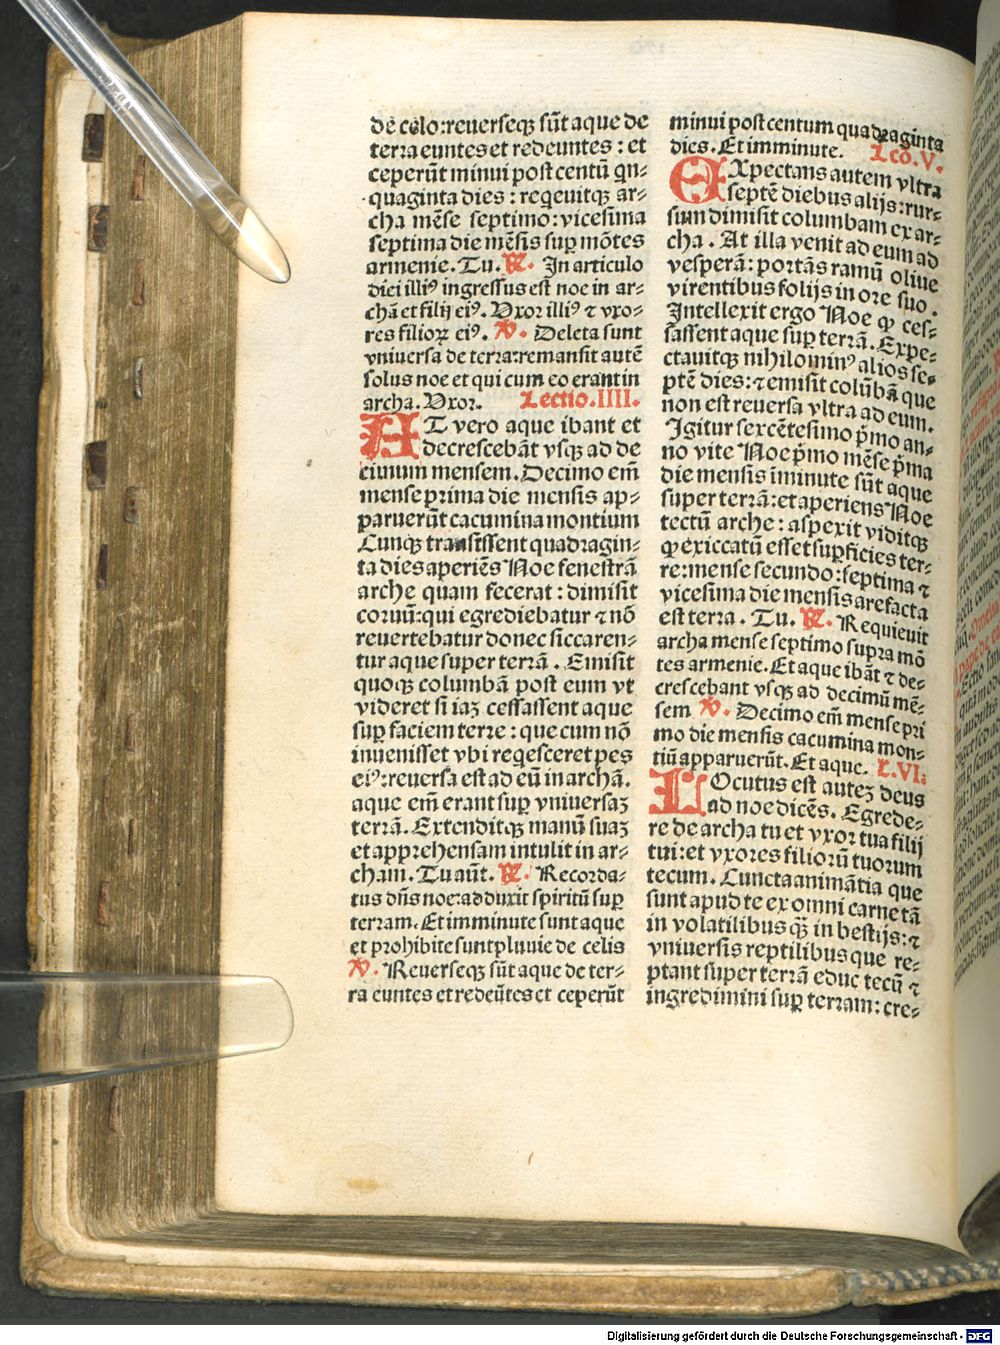 de celo:reuerseqꝫ sūt aque de
terra euntes et redeuntes : et
ceperūt minui post centū qn-
quaginta dies : reqeuitqꝫ ar-
cha mēse septimo: vicesima
septima die mēsis suꝑ mōtes
armenie. Tu. ℟. In articulo
diei illiꝰ ingressus est noe in ar-
chā et filij eiꝰ. Vxor illiꝰ ⁊ vxo-
res filioꝝ eiꝰ. ℣. Deleta sunt
vniuersa de terra: remansit autē
solus noe et qui cum eo erant in
archa. Vxor. Lectio.IIII.
AT vero aque ibant et
decrescebāt vsqꝫ ad de
cimum mensem. Decimo em̄
mense prima die mensis ap-
paruerūt cacumina montium
Cunqꝫ transissent quadragin-
ta dies aperiēs Noe fenestrā
arche quam fecerat : dimisit
coruū: qui egrediebatur ⁊ nō
reuertebatur donec siccaren-
tur aque super terrā . Emisit
quoqꝫ columbā post eum vt
videret si iaꝫ cessassent aque
suꝑ faciem terre : que cum nō
inuenisset vbi reqesceret pes
eiꝰ: reuersa est ad eū in archā.
aque em̄ erant suꝑ vniuersaꝫ
terrā. Extenditqꝫ manū suaꝫ
et apprehensam intulit in ar-
cham. Tu aūt. ℟. Recorda-
tus dn̄s noe: adduxit spiritū suꝑ
terram. Et imminute sunt aque
et prohibite sunt pluuie de celis
℣. Reuerseqꝫ sūt aque de ter-
ra euntes et redeūtes et ceperūt
minui post centum quadraginta
dies. Et imminute. Lco.V.
EXpectans autem vltra
septē diebus alijs: rur-
sum dimisit columbam ex ar-
cha . At illa venit ad eum ad
vesperā: portās ramū oliue
virentibus folijs in ore suo .
Intellexit ergo Noe ꝙ ces-
sassent aque suꝑ terrā. Expe-
ctauitqꝫ nihilominꝰ alios se-
ptē dies: ⁊ emisit colūbā que
non est reuersa vltra ad eum.
Igitur sexcētesimo p̄mo an-
no vite Noe p̄mo mēse p̄ma
die mensis īminute sūt aque
super terrā: et aperiens Noe
tectū arche : aspexit viditqꝫ
ꝙ exiccatū esset suꝑficies ter-
re: mense secundo: septima ⁊
vicesima die mensis arefacta
est terra . Tu. ℟. Requieuit
archa mense septimo supra mō
tes armenie. Et aque ibāt ⁊ de-
crescebant vsqꝫ ad decimū mē-
sem ℣. Decimo em̄ mense pri
mo die mensis cacumina mon-
tiū apparuerūt. Et aque. L.VI.
LOcutus est auteꝫ deus
ad noe dicēs. Egrede-
re de archa tu et vxor tua filij
tui: et vxores filiorū tuorum
tecum. Cuncta animātia que
sunt apud te ex omni carne tā
in volatilibus qꝫ̄ in bestijs: ⁊
vniuersis reptilibus que re-
ptant super terrā educ tecū ⁊
ingredimini suꝑ terram: cre-
Digitalisierung gefördert durch die Deutsche Forschungsgemeinschaft - DFG